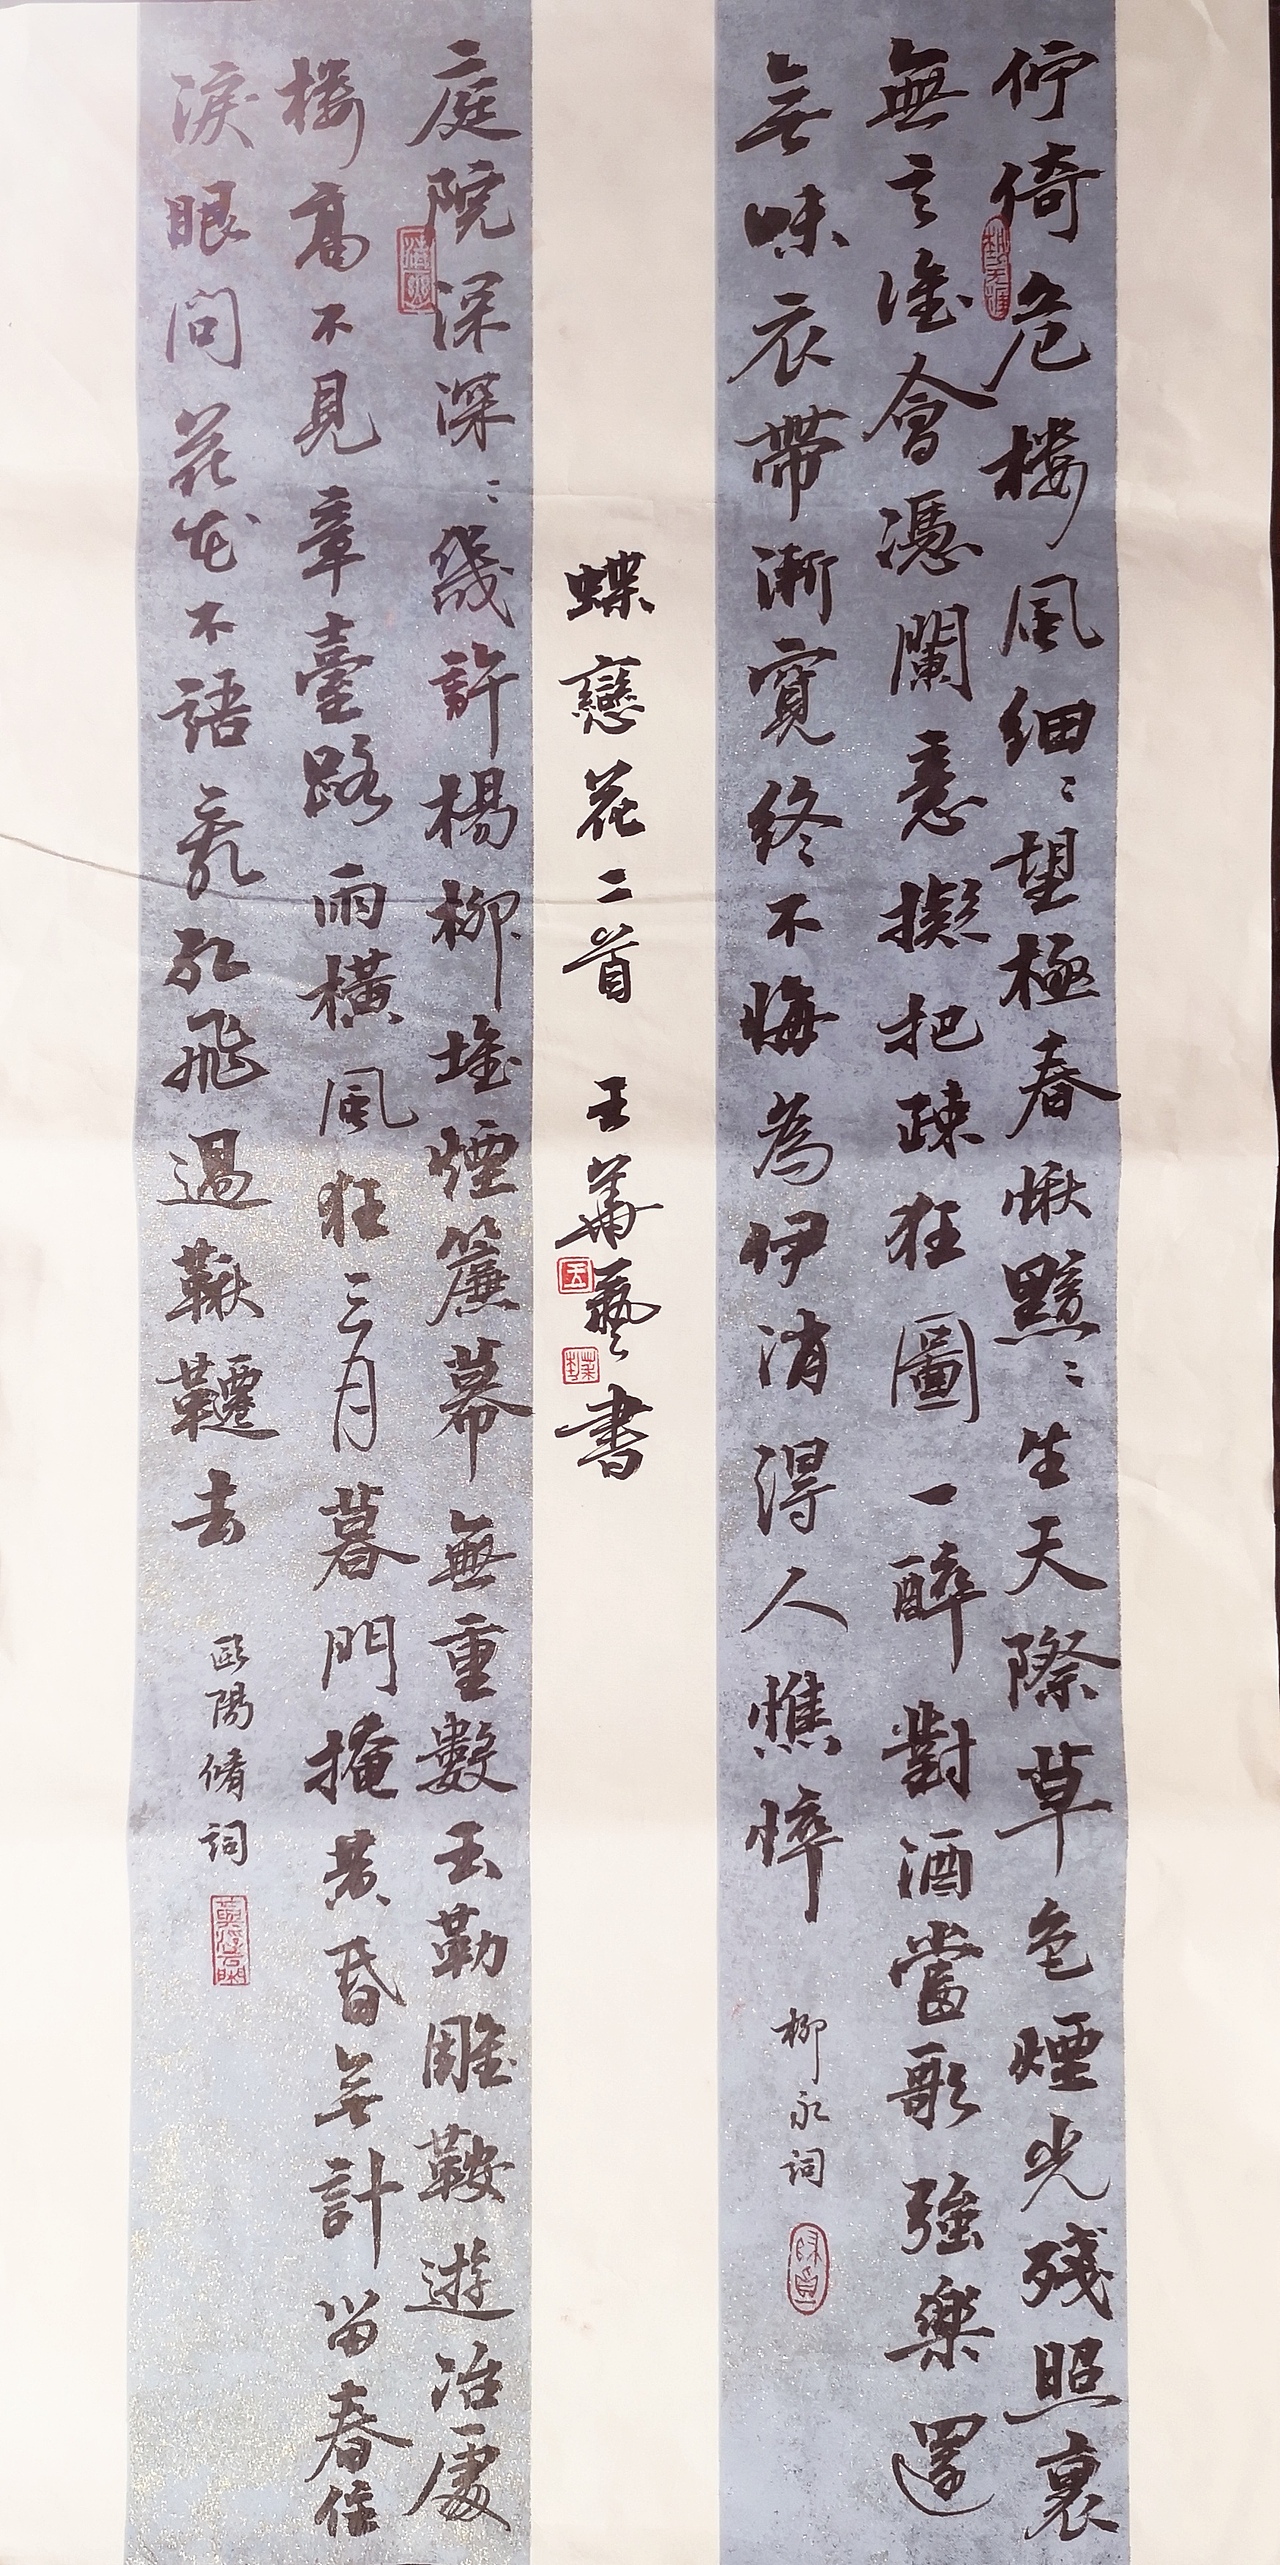 佇倚危楼風細〻望極春愀黯〻生天際草色煙光殘照裏
無言誰會憑闌意擬把疎狂圖一醉對酒當歌強樂還
無味衣帶漸寬終不悔為伊消得人憔悴
柳永詞
蝶戀花二首 王藝書
庭院深深〻幾許楊柳堆煙簾幕無重數玉勒雕鞍遊冶處
楼高不見章臺路雨橫風狂三月暮門掩黃昏無計留春住
淚眼問花花不語亂紅飛過鞦韆去
歐陽脩詞